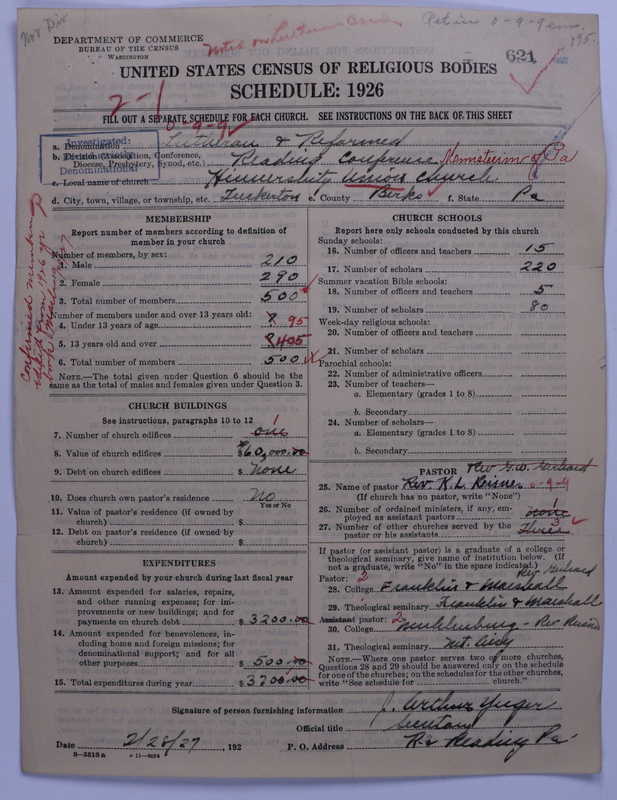 DEPARTMENT OF COMMERCE
BUREAU OF THE CENSUS
WASHINGTON
Noted on Lutheran Card
621
195
UNITED STATES CENSUS OF RELIGIOUS BODIES
SCHEDULE: 1926
2-1
FILL OUT A SEPARATE SCHEDULE FOR EACH CHURCH. SEE INSTRUCTIONS ON THE BACK OF THIS SHEET
0-9-9
Investigated:
Denominational
a. Denomination Lutheran & Reformed
b. Division (Association, Conference, Diocese, Presbytery, Synod, etc.) Reading Conference Ministerium of Pa
c. Local name of church Union Church
d. City, town, village, or township, etc. Tuckerton e. County Berks f. State Pa
MEMBERSHIP
Report number of members according to definition of member in your church
Number of members, by sex:
1. Male 210
2. Female 290
3. Total number of members 500
Number of members under and over 13 years old:
4. Under 13 years of age ? 95
5. 13 years old and over ? 405
6. Total number of members 500
NOTE.—The total given under Question 6 should be the same as the total of males and females given under Question 3.
CHURCH BUILDINGS
See instructions, paragraphs 10 to 12
7. Number of church edifices one 1
8. Value of church edifices $60,000.00
9. Debt on church edifices $ none
10. Does church own pastor's residence No
Yes or No
11. Value of pastor's residence (if owned by church) $
12. Debt on pastor's residence (if owned by church) $
EXPENDITURES
Amount expended by your church during last fiscal year
13. Amount expended for salaries, repairs, and other running expenses; for improvements or new buildings; and for payments on church debt $3200.00
14. Amount expended for benevolences, including home and foreign missions; for denominational support; and for all other purposes $500.00
15. Total expenditures during year $3700.00
CHURCH SCHOOLS
Report here only schools conducted by this church
Sunday schools:
16. Number of officers and teachers 15
17. Number of scholars 220
Summer vacation Bible schools:
18. Number of officers and teachers 5
19. Number of scholars 80
Week-day religious schools:
20. Number of officers and teachers
21. Number of scholars
Parochial schools:
22. Number of administrative officers
23. Number of teachers—
a. Elementary (grades 1 to 8)
b. Secondary
24. Number of scholars—
a. Elementary (grades 1 to 8)
b. Secondary
PASTOR Rev G.W. Gerhard
25. Name of pastor Rev. K.L. Reisner 0-9-9
(If church has no pastor, write "None")
26. Number of ordained ministers, if any, employed as assistant pastors none 1
27. Number of other churches served by the pastor or his assistants three 3
If pastor (or assistant pastor) is a graduate of a college or theological seminary, give name of institution below. (If not a graduate, write "No" in the space indicated.)
Pastor: 2 Rev Gerhard
28. College Franklin & Marshall
29. Theological seminary Franklin & Marshall
Assistant pastor: 2
30. College Muhlenburg - Rev Reisner
31. Theological seminary Mt. Airy
NOTE.—Where one pastor serves two or more churches, Questions 28 and 29 should be answered only on the schedule for one of the churches; on the schedules for the other churches, write "See schedule for church."
Signature of person furnishing information J. Arthur Yuger
Official title
Date 2/28/27, 192 P. O. Address Reading Pa
8—5518a 11—9624